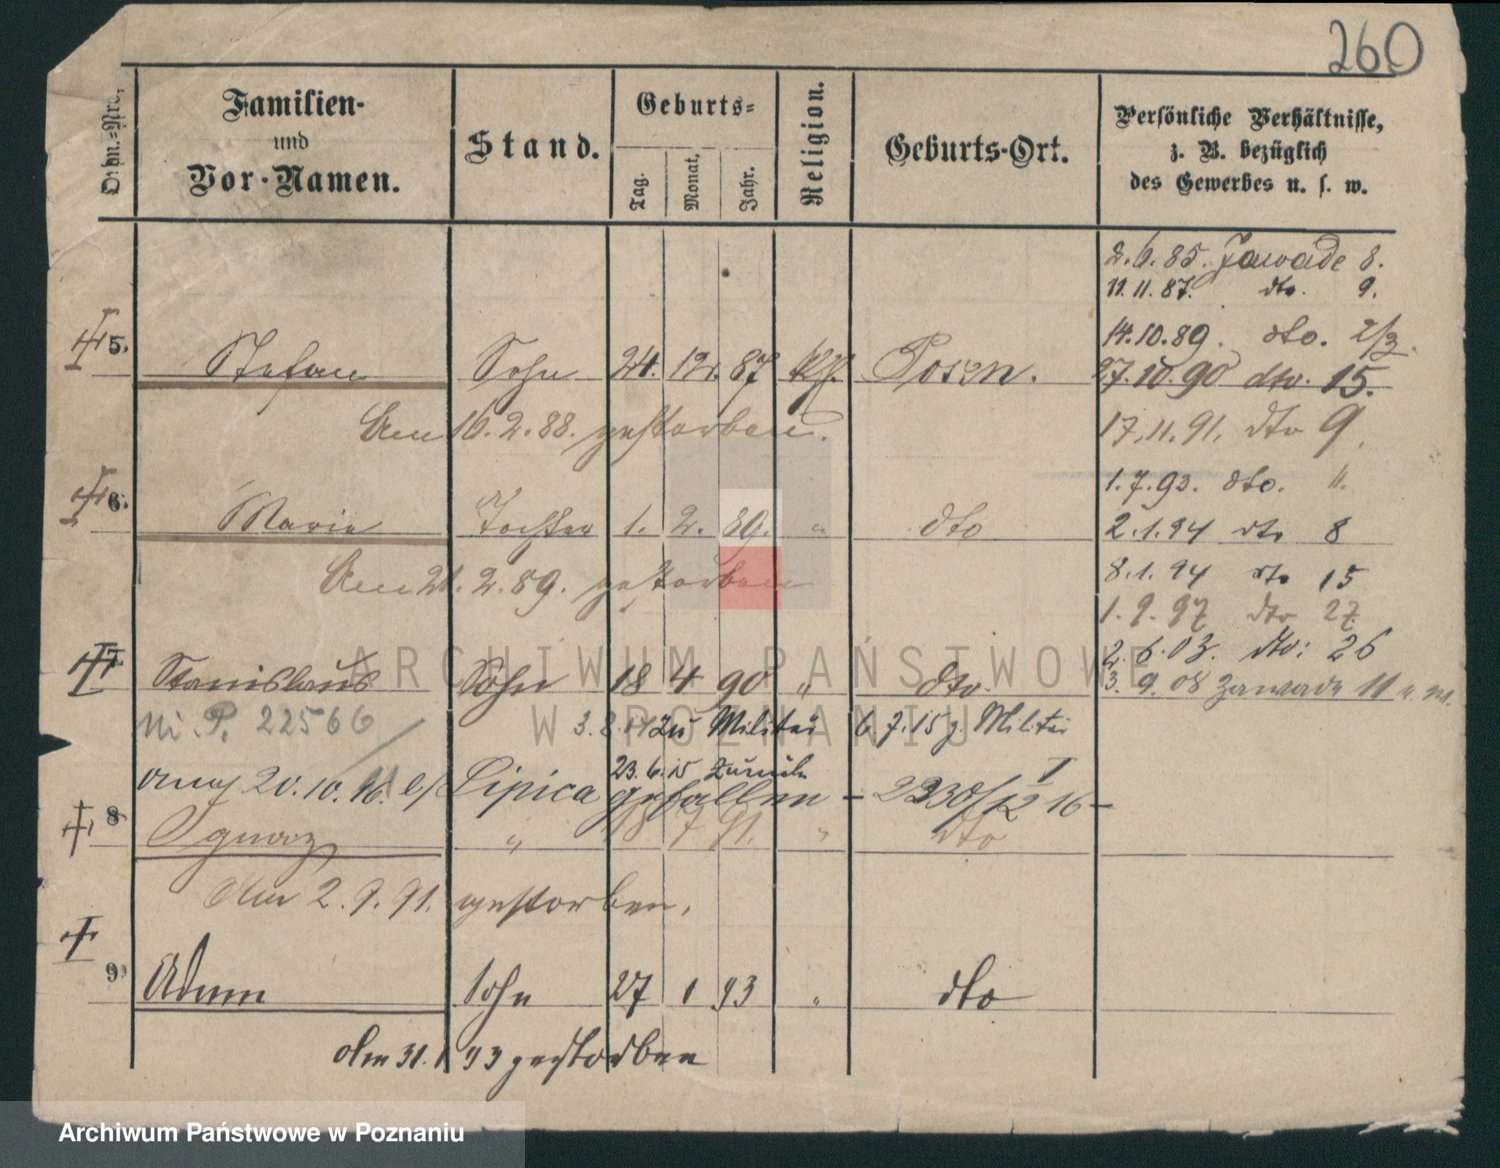 260
Ordn.-Nro,
Familien-
und
Vor-Namen.
Stand.
Geburts-
Tag.
Monat.
Jahr.
Religion.
Geburts-Ort.
Persönliche Verhältnisse,
z. B. bezüglich
des Gewerbes u. s. w.
2.6.85. Zawade 8.
11.11.87. dto. 9.
14.10.89. dto. 2/3.
5. Stefan Sohn 24. 12. 87 kth. Posen. 27.10.90 dto. 15.
Am 16.2.88. gestorben. 17.11.91. dto 9.
1.7.93. dto. 11.
6. Marie Tochter 1. 2. 89. " dto 2.1.94 dto 8
Am 21.2.89. gestorben 8.1.94 dto 15
1.9.97 dto 27
2.6.03. dto: 26
7. Stanislaus Sohn 18 4 90 " dto. 3.9.08 Zawade 11
P. 22566 zu Militär 6.7.15 z. Militär
23.6.15 Zurück
20.10.16. Lipica gefallen – 2230/12 I 16 –
8 Ignaz " 18 7 91. " dto
Am 2.9.91. gestorben.
9 Adam Sohn 27 1 93 " dto
Am 31.1.93 gestorben
ARCHIWUM PAŃSTWOWE
W POZNANIU
Archiwum Państwowe w Poznaniu